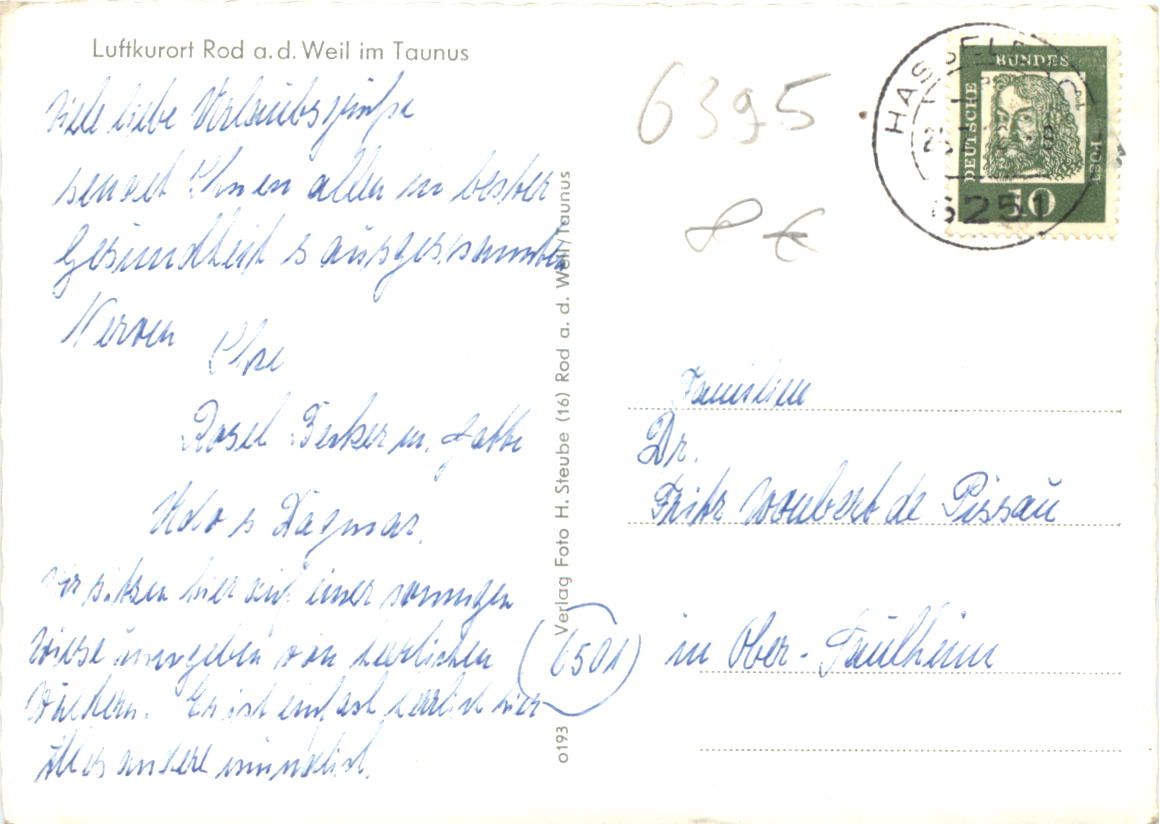 Luftkurort Rod a. d. Weil im Taunus
Viele liebe Urlaubsgrüße
sendet Ihnen allen in bester
Gesundheit u ausgespannten
Nerven Ihre
Rosel Becker m. Gatte
Udo u Dagmar.
Wir sitzen hier auf einer sonnigen
Wiese umgeben von herrlichen
Wäldern. Es ist einfach herrlich hier
Alles andere mündlich.
Verlag Foto H. Steube (16) Rod a. d. Weil/Taunus
o193
6395
8 €
DEUTSCHE
BUNDES
POST
10
6251
Familien
Dr.
Fritz
de
(6501) in Ober-Saulheim